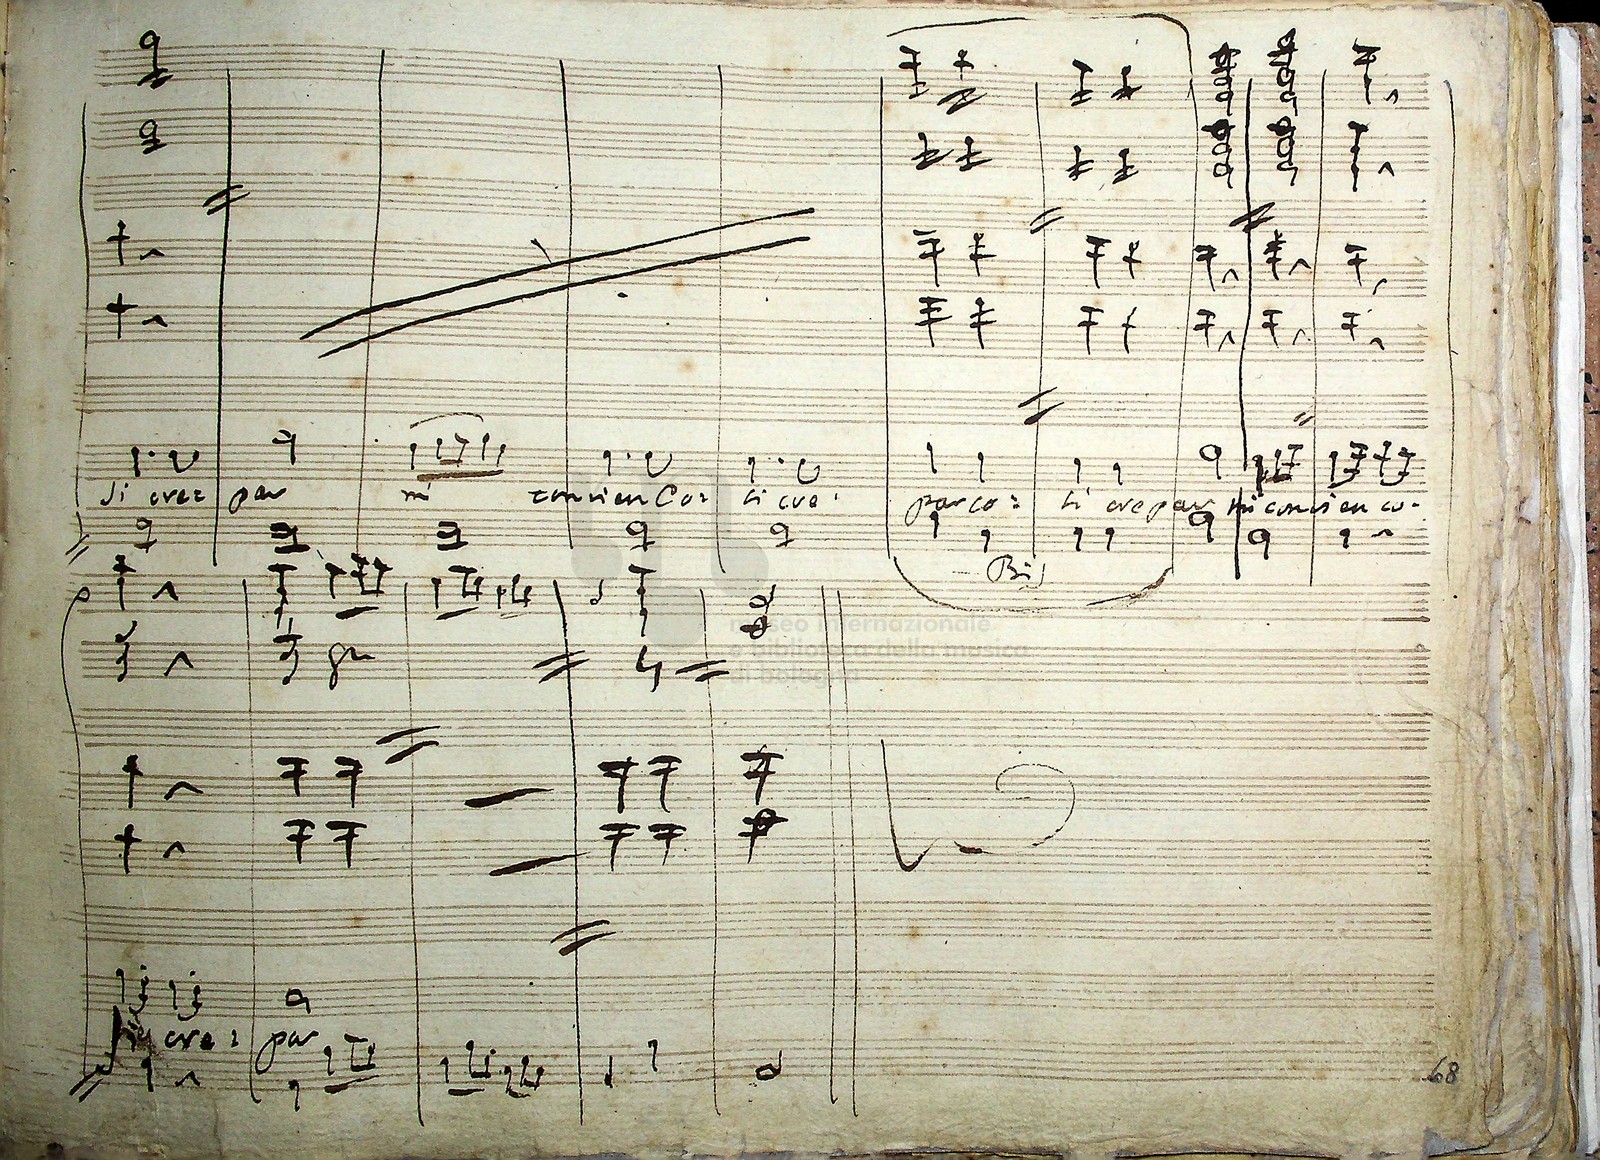 si cre: par mi convien Co: si cre: par co: si cre par mi convien co.
Bis
museo internazionale
e biblioteca della musica
di bologna
cre: par
68